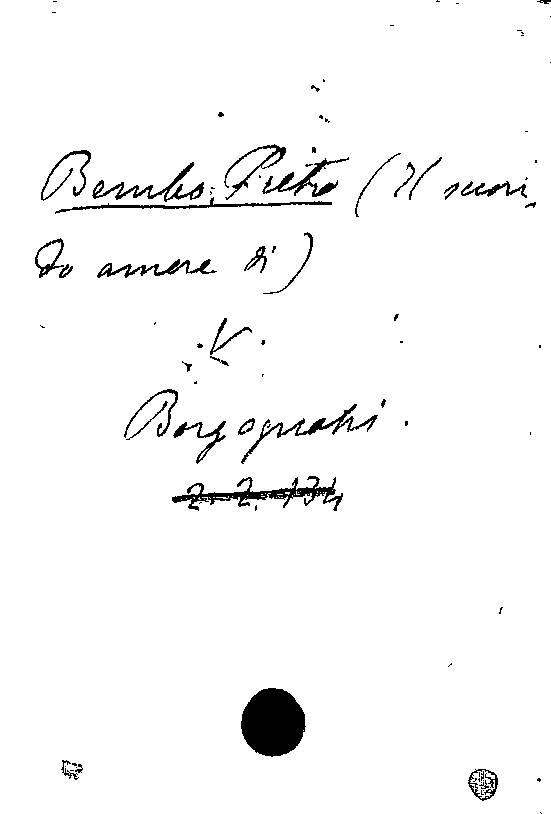 Bembo, Pietro (Il secon-
do amore di)
V.
Borgognoni.
2. 2. 134